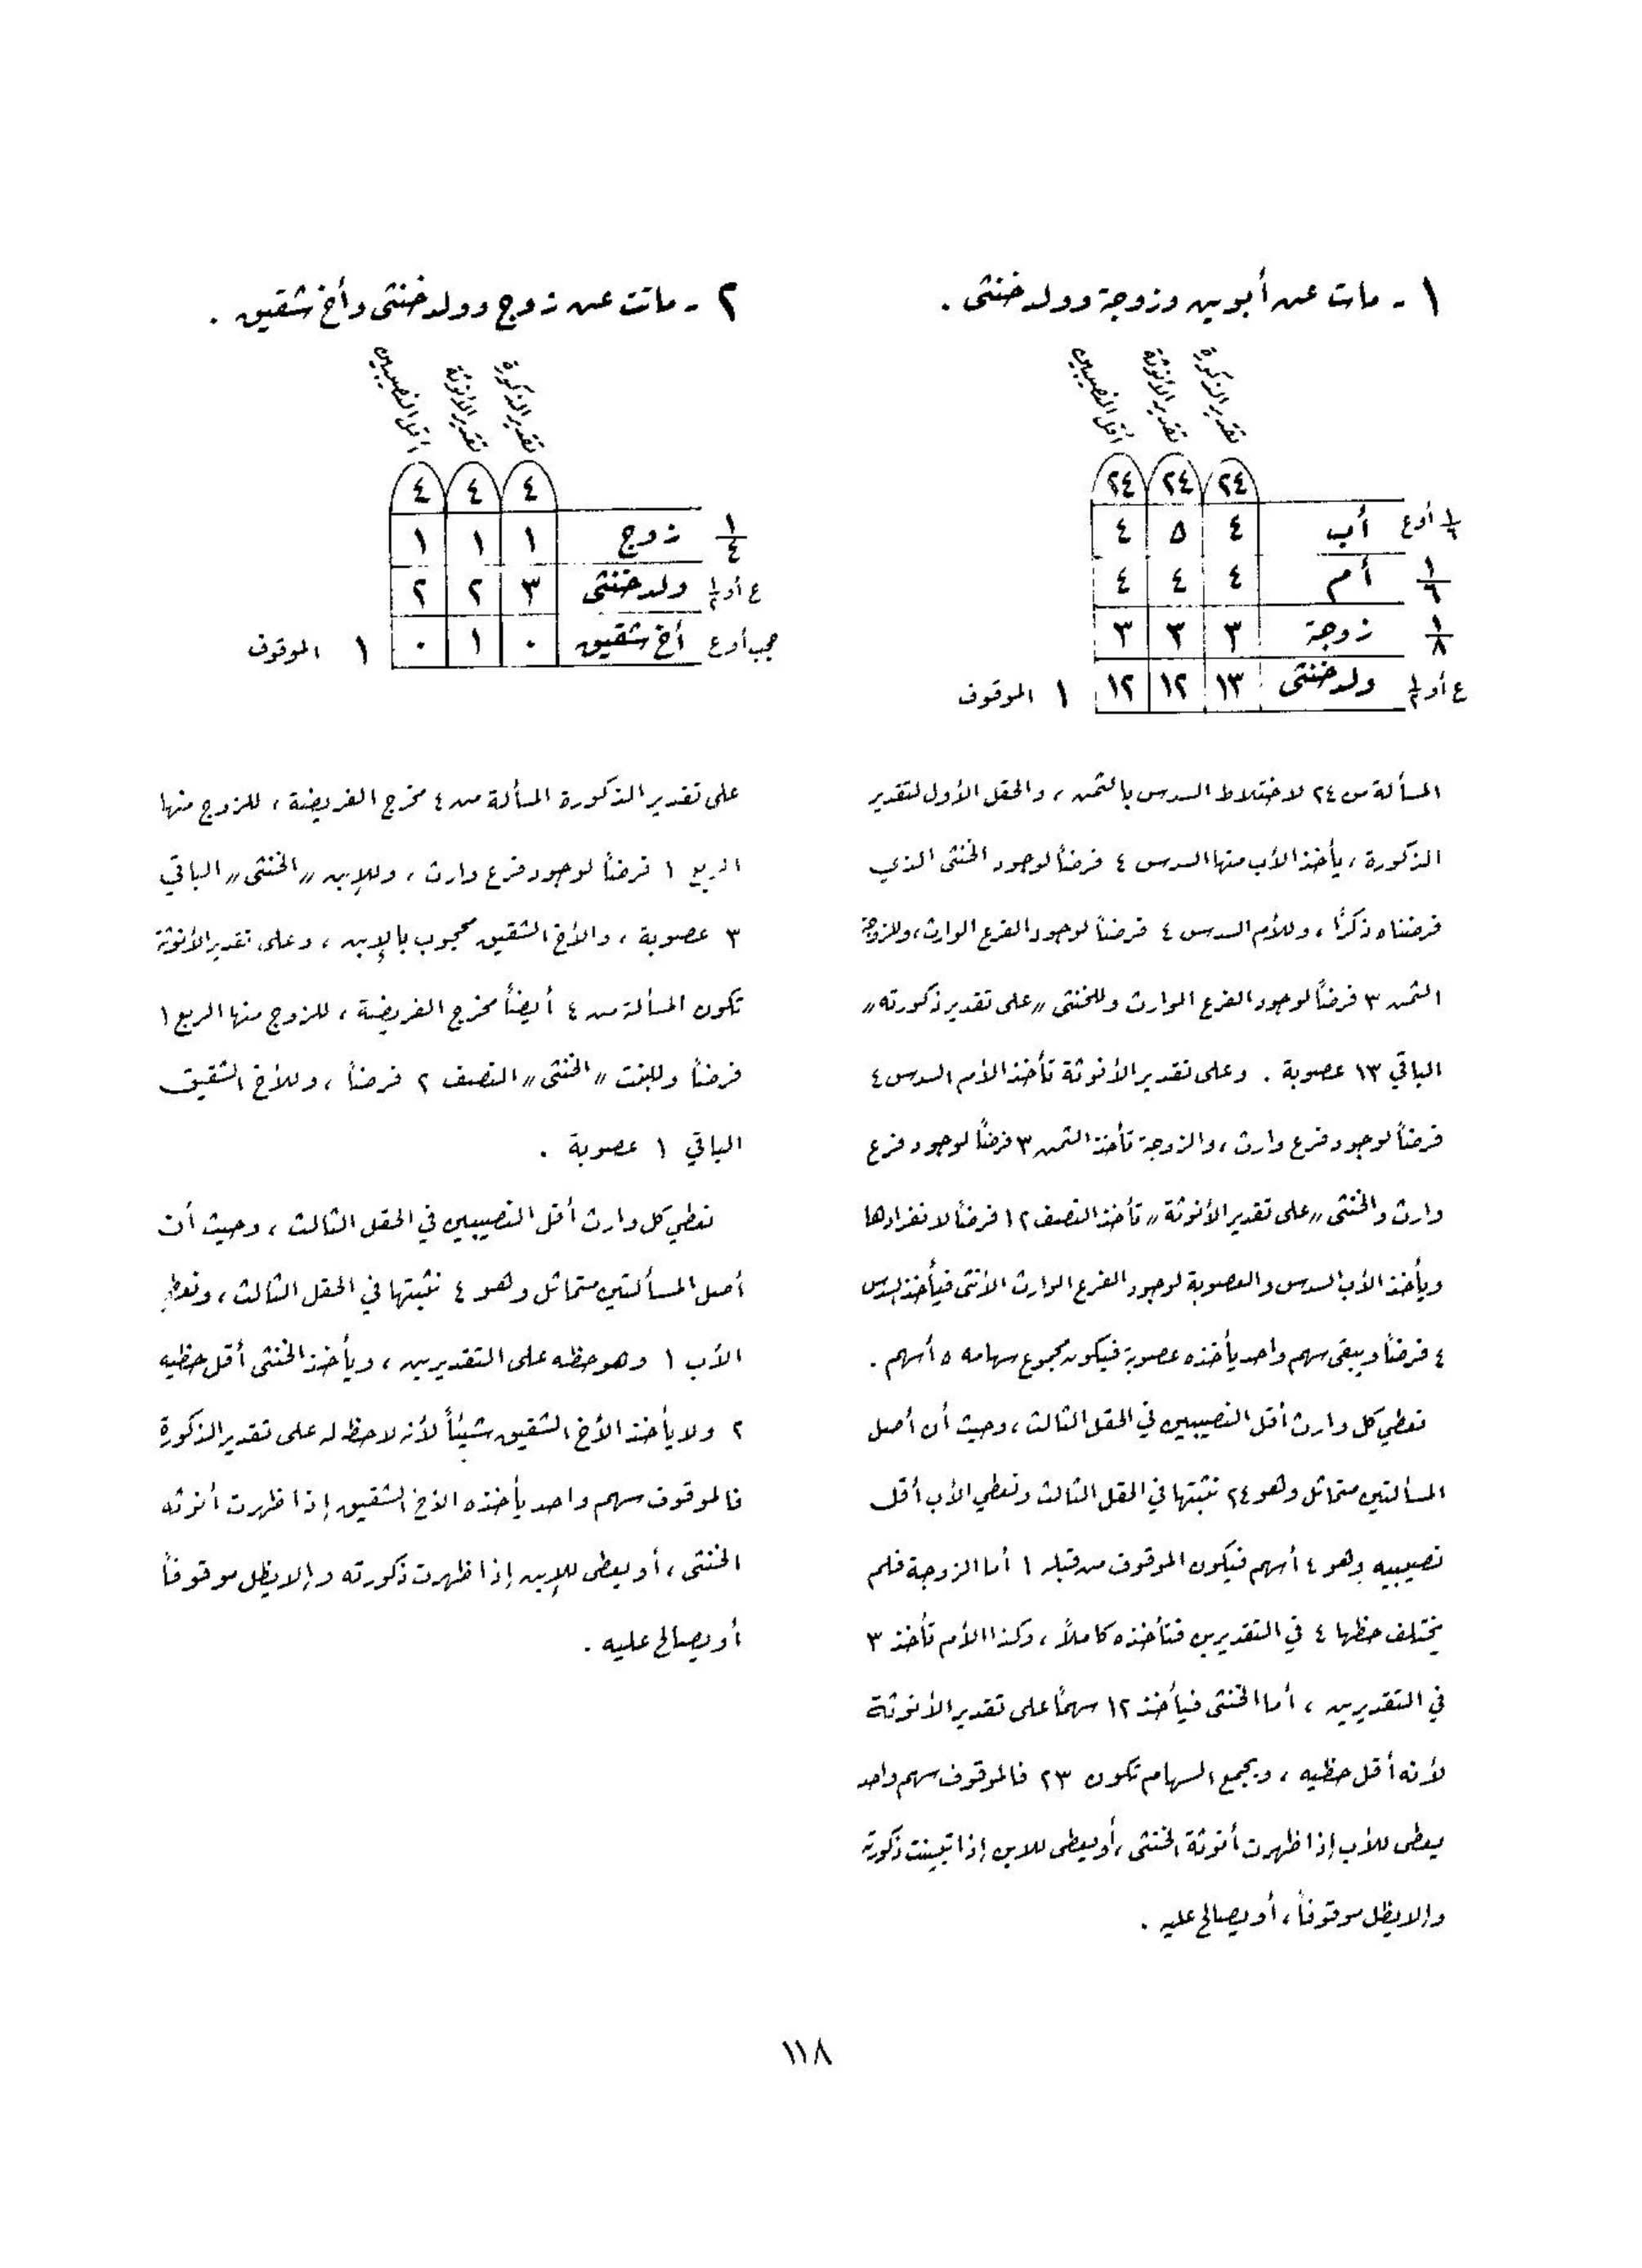 ١ - مات عن أبوين وزوجة وولد خنثى .
تقدير الذكورة
تقدير الأنوثة
أقل النصيبين
٢٤ ٢٤ ٢٤
١/٦ أوع أب ٤ ٥ ٤
١/٦ أم ٤ ٤ ٤
١/٨ زوجة ٣ ٣ ٣
ع أو ١/٢ ولد خنثى ١٣ ١٢ ١٢ ١ الموقوف
المسألة من ٢٤ لاختلاط السدس بالثمن ، والحقل الأول لتقدير
الذكورة ، يأخذ الأب منها السدس ٤ فرضاً لوجود الخنثى الذي
فرضناه ذكراً ، وللأم السدس ٤ فرضاً لوجود الفرع الوارث ، وللزوجة
الثمن ٣ فرضاً لوجود الفرع الوارث وللخنثى "على تقدير ذكورته"
الباقي ١٣ عصوبة . وعلى تقدير الأنوثة تأخذ الأم السدس ٤
فرضاً لوجود فرع وارث ، والزوجة تأخذ الثمن ٣ فرضاً لوجود فرع
وارث والخنثى "على تقدير الأنوثة" تأخذ النصف ١٢ فرضاً لانفرادها
ويأخذ الأب السدس والعصوبة لوجود الفرع الوارث الأنثى فيأخذ السدس
٤ فرضاً ويبقى سهم واحد يأخذه عصوبة فيكون مجموع سهامه ٥ أسهم .
نعطي كل وارث أقل النصيبين في الحقل الثالث ، وحيث أن أصل
المسألتين متماثل وهو ٢٤ نثبتها في الحقل الثالث ونعطي الأب أقل
نصيبيه وهو ٤ أسهم فيكون الموقوف من قبله ١ أما الزوجة فلم
يختلف حظها ٤ في التقديرين فتأخذه كاملاً ، وكذا الأم تأخذ ٣
في التقديرين ، أما الخنثى فيأخذ ١٢ سهماً على تقدير الأنوثة
لأنه أقل حظيه ، وبجمع السهام تكون ٢٣ فالموقوف سهم واحد
يعطى للأب إذا ظهرت أنوثة الخنثى ، أو يعطى للابن إذا تبينت ذكورته
وإلا يظل موقوفاً ، أو يصالح عليه .
٢ - ماتت عن زوج وولد خنثى وأخ شقيق .
تقدير الذكورة
تقدير الأنوثة
أقل النصيبين
٤ ٤ ٤
١/٤ زوج ١ ١ ١
ع أو ١/٢ ولد خنثى ٣ ٢ ٢
حجب أوع أخ شقيق ٠ ١ ٠ ١ الموقوف
على تقدير الذكورة المسألة من ٤ مخرج الفريضة ، للزوج منها
الربع ١ فرضاً لوجود فرع وارث ، وللإبن "الخنثى" الباقي
٣ عصوبة ، والأخ الشقيق محجوب بالإبن ، وعلى تقدير الأنوثة
تكون المسألة من ٤ أيضاً مخرج الفريضة ، للزوج منها الربع ١
فرضاً وللبنت "الخنثى" النصف ٢ فرضاً ، وللأخ الشقيق
الباقي ١ عصوبة .
نعطي كل وارث أقل النصيبين في الحقل الثالث ، وحيث أن
أصل المسألتين متماثل وهو ٤ نثبتها في الحقل الثالث ، ونعطي
الأب ١ وهو حظه على التقديرين ، ويأخذ الخنثى أقل حظيه
٢ ولا يأخذ الأخ الشقيق شيئاً لأنه لاحظ له على تقدير الذكورة
فالموقوف سهم واحد يأخذه الأخ الشقيق إذا ظهرت أنوثه
الخنثى ، أو يعطى للإبن إذا ظهرت ذكورته وإلا يظل موقوفاً
أو يصالح عليه .
١١٨